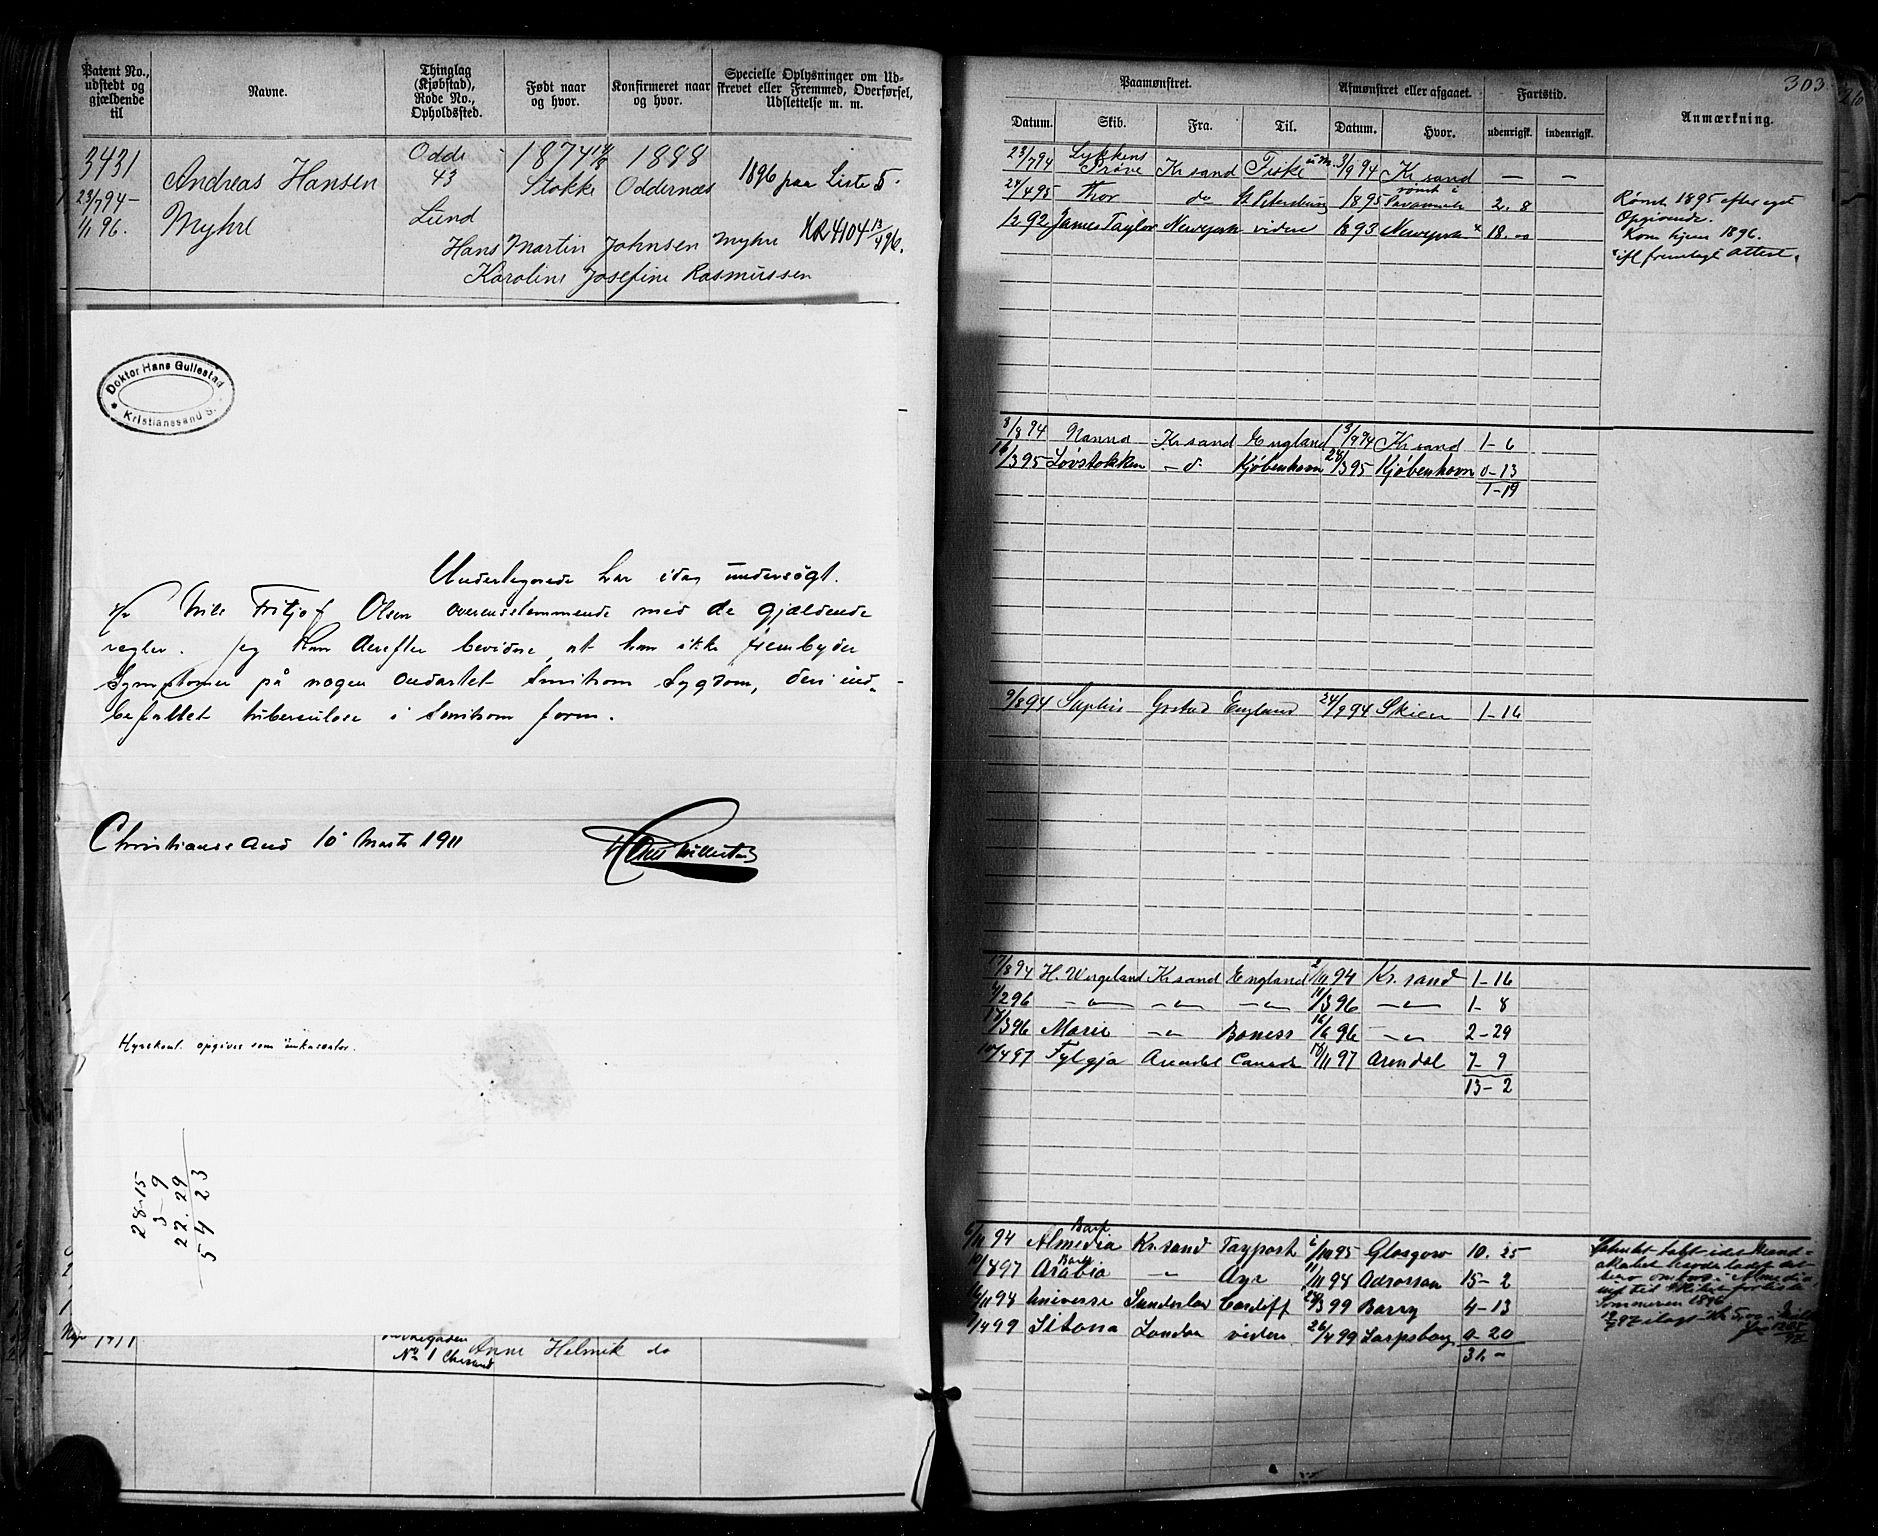 Patent No., udstedt og gjældende til
Navne.
Thinglag (Kjøbstad), Rode No., Opholdssted.
Født naar og hvor.
Konfirmeret naar og hvor.
Specielle Oplysninger om Udskrevet eller Fremmed, Overførsel, Udslettelse m. m.
3431
23/7 94 –
1/1 96.
Andreas Hansen
Myhre
Oddr
43
Lund
1874
Stokke
1888
Oddernæs
1896 paa Liste 5.
4104 13/4 96.
Hans Martin Johnsen Myhre
Karoline Josefine Rasmussen
Doktor Hans Gullestad
Kristianssand S.
Undertegnede har idag undersøgt.
Hr Nils Fritjof Olsen overensstemmende med de gjældende
regler. Jeg kan derefter bevidne, at han ikke frembyder
Symptomer på nogen ondartet smitsom Sygdom, deri ind-
befattet tuberculose i smitsom form.
Christianssand 10 Marts 1911
Hans Gullestad
Hyrekont. opgives som
28-15
3-9
22.29
54 23
No 1 Chrsand
Anne Helmik do
303
Paamønstret.
Afmønstret eller afgaaet.
Fartstid.
Anmærkning.
Datum. Skib. Fra. Til. Datum. Hvor. udenrigsk. indenrigsk.
23/7 94 Lykkens Prøve Krsand Fiske 3/9 94 Kr sand – –
24/4 95 Thor do St. Petersburg 1895 rømt i 2. 8
12 92 James Taylor Newyork videre 1893 Newyork 18.
Rømt 1895 efter eget
Opgivende.
Kom hjem 1896.
ifl fremlagt attest.
8/8 94 Nanna Krsand England 13/9 94 Kr sand 1-6
16/3 95 Løvstakken – d. Kjøbenhavn 28/3 95 Kjøbenhavn 0-13
1-19
9/8 94 England 24/9 94 Skien 1-16
17/8 94 H. Wergeland Krsand England 2/10 94 Kr. sand 1-16
4/2 96 – " – – " – – " – 11/3 96 – " – 1- 8
18/3 96 Marie – " – Boness 16/6 96 – " – 2-29
10/4 97 Fylgja Arendal Canada 18/11 97 Arendal 7- 9
13- 2
6/11 94 Bark Almedia Kr.sand Tayport 6/10 95 Glasgow 10. 25
10/8 97 Bark Arabia – " – Ayr 11/11 98 Adrossan 15- 2
16/11 98 Universe Sunderland Cardiff 28/3 99 Barry 4-13
1/4 99 Sitona London videre 26/4 99 Sarpsborg 0-20
31.-
Sommeren 1896